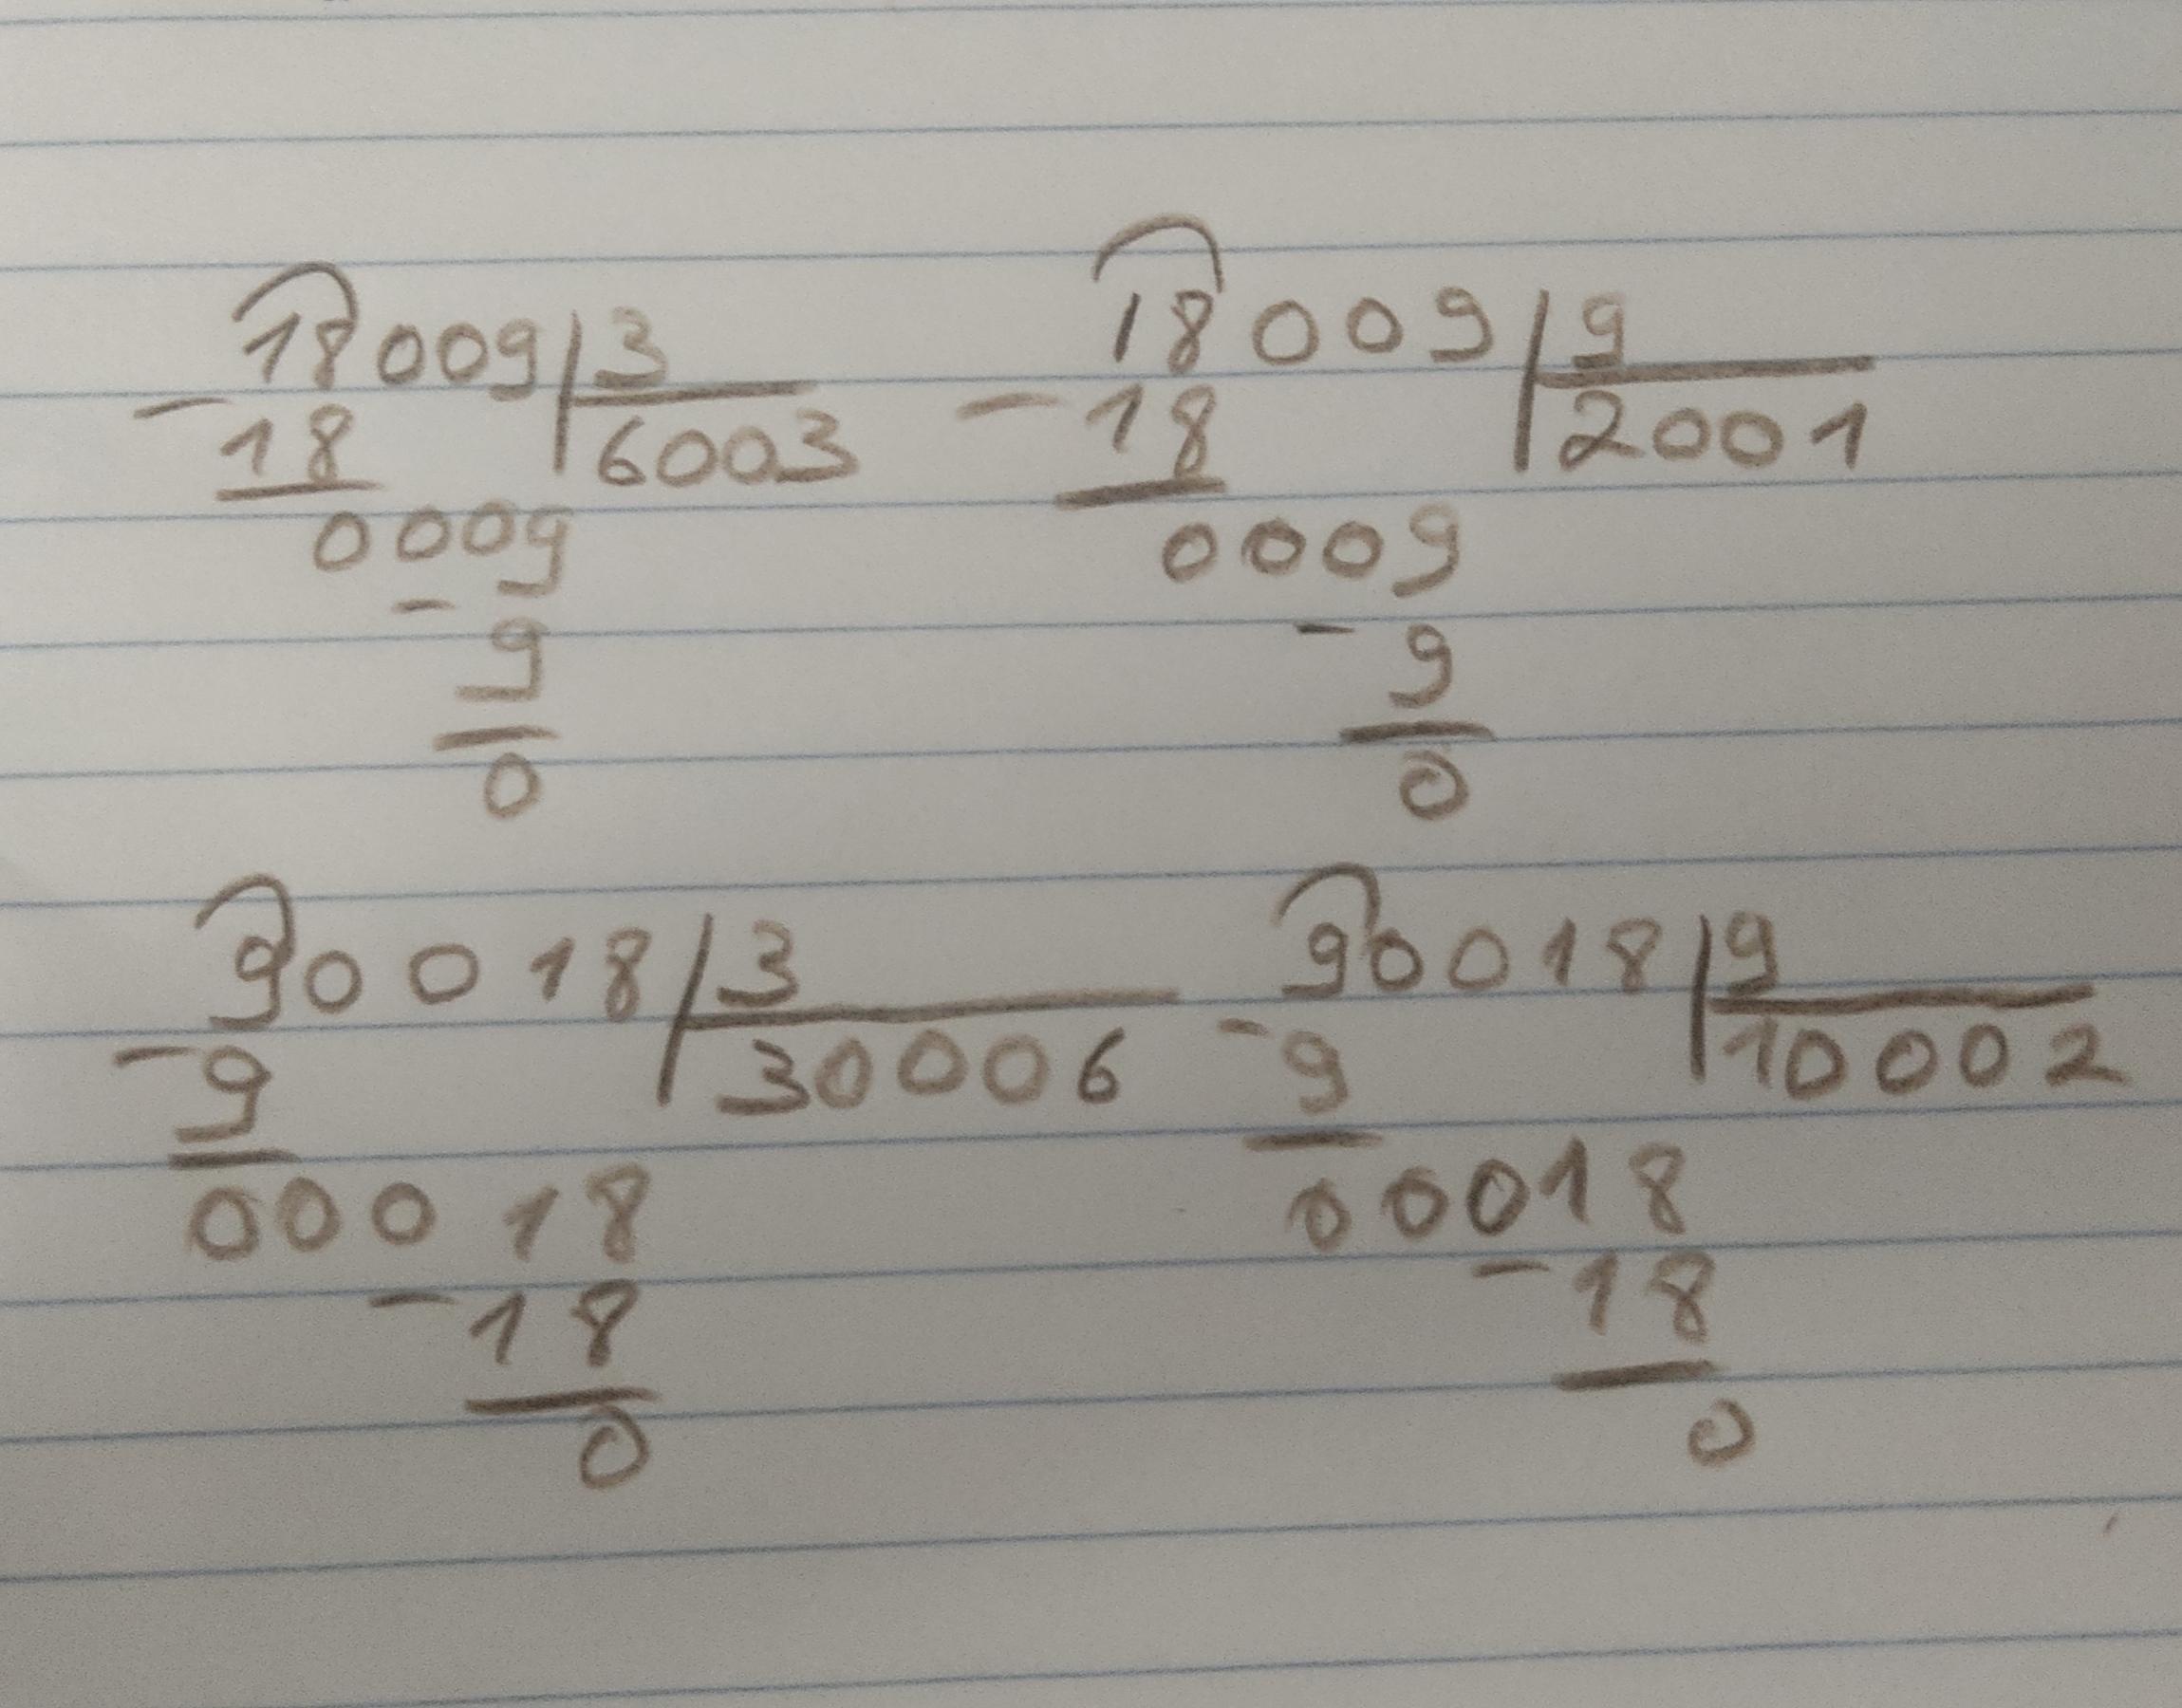 18009 | 3 18009 | 9
- 18 6003 - 18 2001
0009 0009
- 9 - 9
0 0
90018 | 3 90018 | 9
- 9 30006 - 9 10002
00018 00018
- 18 - 18
0 0